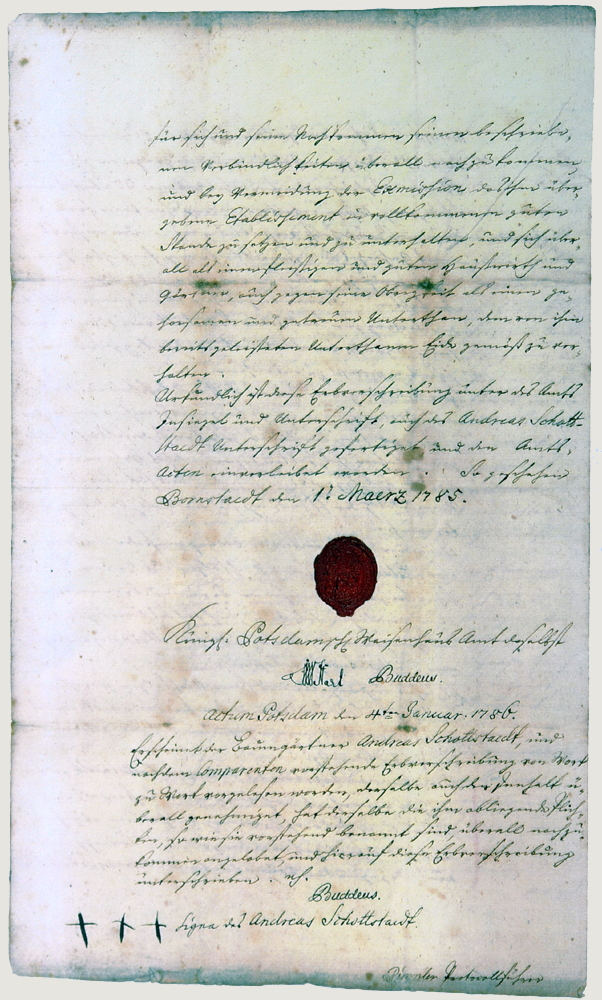 für sich und seine Nachkommen seinen beschriebe,
nen Verbindlichkeiten überall nachzukommen,
und bey Vermeidung der Exmission das ihm über,
gebene Etablissement in vollkommenen guten
Stande zu setzen und zu unterhalten, und sich über,
all als einen fleissigen und guten Hauswirth und
Gärtner, auch gegen seine Obrigkeit als einen ge,
horsamen und getreuen Unterthan, dem von ihm
bereits geleisteten Unterthanen Eide gemäß zu ver,
halten.
Urkundlich ist diese Erbverschreibung unter des Amts
Insiegel und Unterschrift, auch des Andreas Schott-
staedt Unterschrift gefertiget und den Amts,
Acten einverleibet worden. So geschehen
Bornstaedt den 1t Maerz 1785.
Königl. Potsdamsch Waisenhaus Amt daselbst
Buddeus.
Actum Potsdam den 4ten Januar. 1786.
Erscheint der Baumgärtner Andreas Schottstaedt, und
nachdem Comparenten vorstehende Erbverschreibung von Wort
zu Wort vorgelesen worden, derselbe auch den Inhalt ü,
berall genehmiget, hat derselbe die ihm obliegende Pflich,
ten, so wie sie vorstehend benannt sind überall nachzu,
kommen angelobet, und hierauf diese Erbverschreibung
unterschrieben.
Buddeus.
+ + + Signa des Andreas Schottstaedt.
Protocollführer